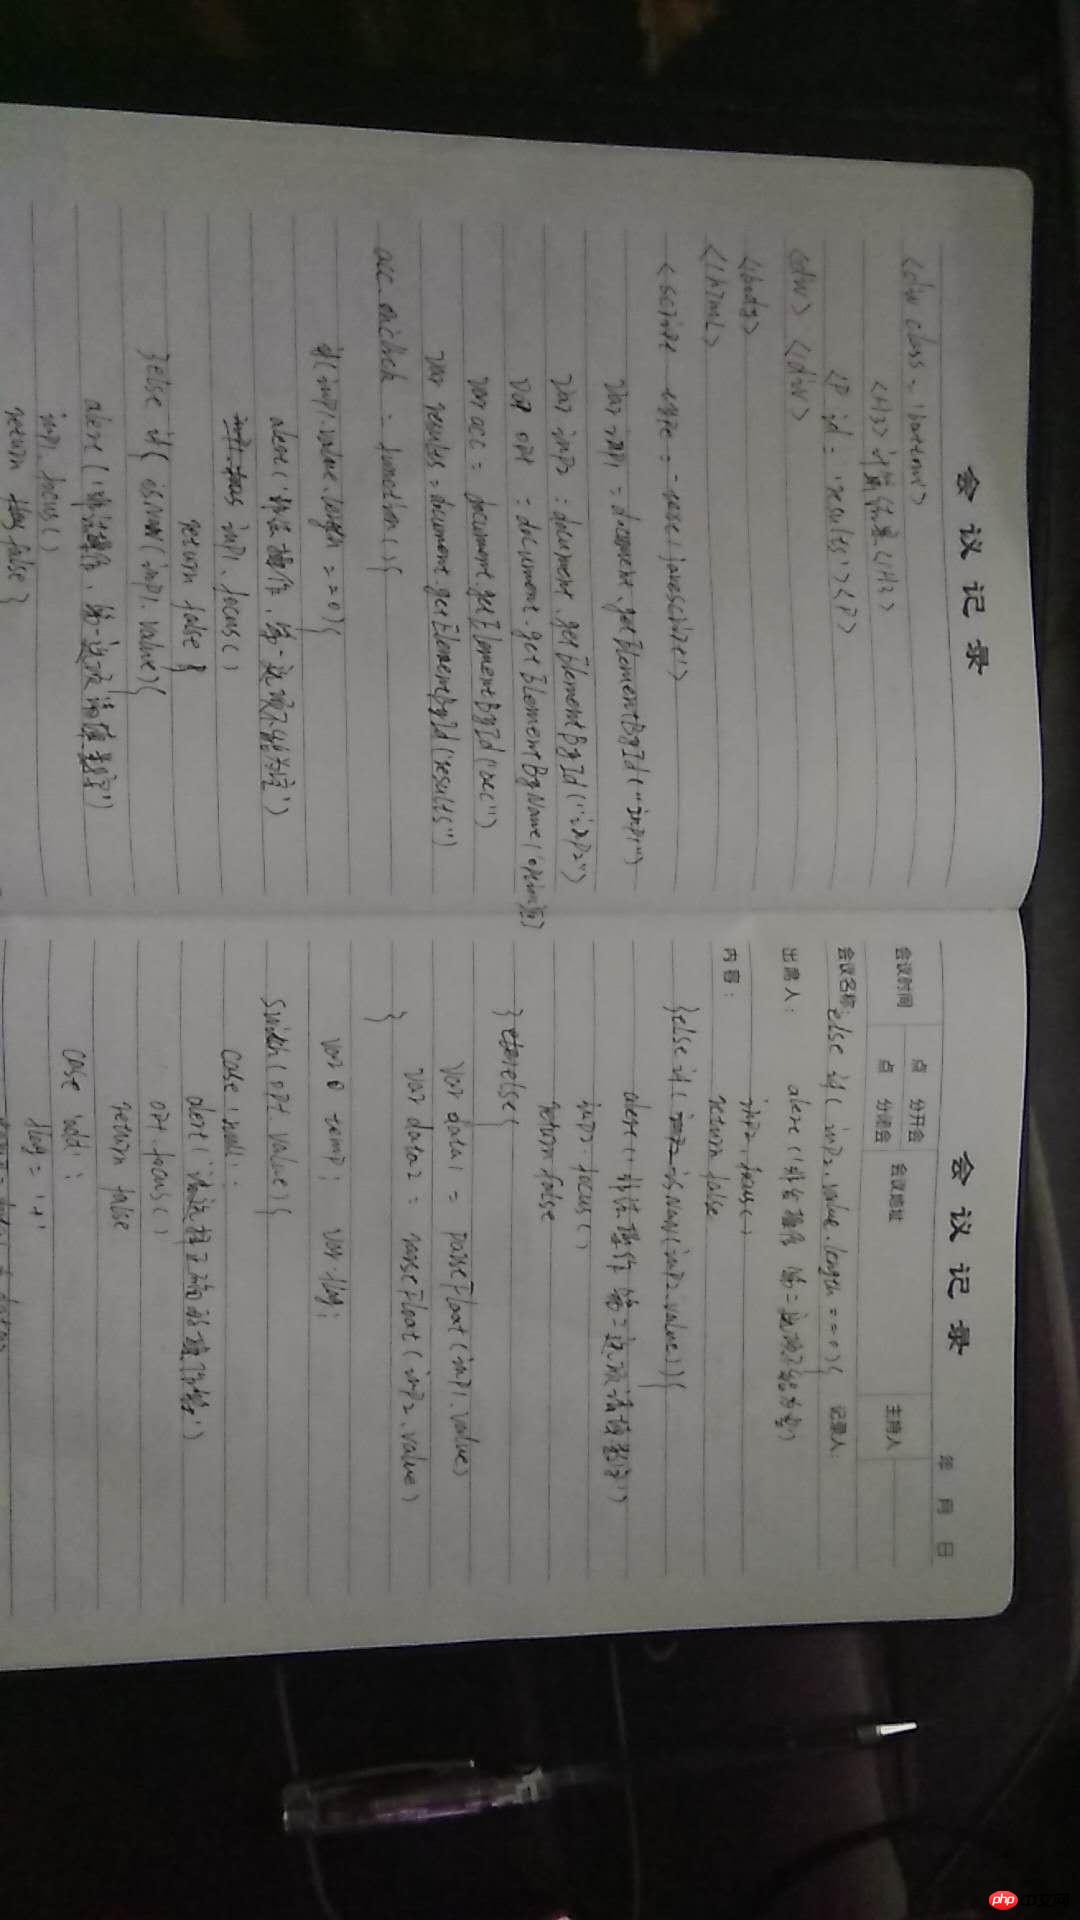 会议记录
<div class='bottom'>
<H3>计算结果</H3>
<P id='results'><P>
<div> <div>
</body>
</html>
<script type="text/javascript">
var inp1 = document.getElementById("inp1")
var inp2 = document.getElementById("inp2")
var opt = document.getElementByName('option')[0]
var acc = document.getElementById('acc")
var results = document.getElementById('results")
acc.onclick = function(){
if(inp1.value.length == 0){
alert('非法操作,第一选项不能为空')
inp1.focus()
return false
}else if( isNaN(inp1.value){
alert('非法操作,第一选项请填数字')
inp1.focus()
return false }
会议记录
年 月 日
会议时间 点 分开会 会议地址 主持人
点 分散会
会议名称: else if( inp2.value.length == 0){ 记录人:
出席人: alert('非法操作 第二选项不能为空')
inp2.focus()
内容: return false
}else if( isNaN(inp2.value)){
alert('非法操作 第二选项请填数字')
inp2.focus()
return false
}else{
var data1 = parseFloat(inp1.value)
var data2 = parseFloat(inp2.value)
}
var temp; var flag;
switch(opt.value){
case 'null':
alert('请选择正确的操作')
opt.focus()
return false
case 'add':
flag = '+'
php 中文网